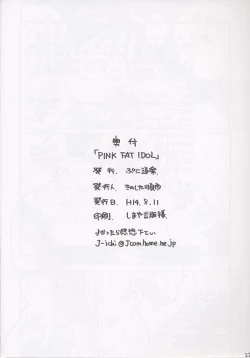 奥付
「PINK FAT IDOL」
発行.
発行人.
発行日. H14.8.11
印刷. しまや出版様
よかったら感想下さい
J-ichi@Jcom.home.ne.jp